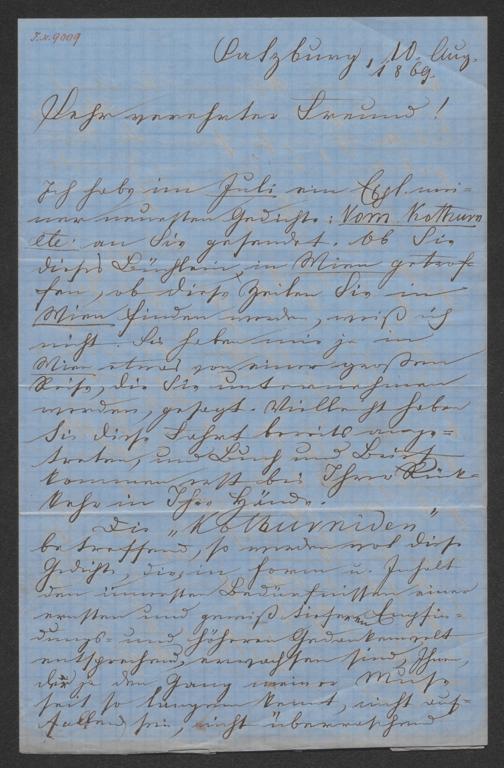 I.N. 9009
Salzburg, 10. Aug.
1869.
Sehr verehrter Freund!
Ich habe im Juli ein Expl. mei-
ner neuesten Gedichte: Vom Kothurn
etc. an Sie gesendet. Ob Sie
dieses Büchlein in Wien getrof-
fen, ob diese Zeilen Sie in
Wien finden werden, weiß ich
nicht. Sie haben mir ja in
Wien etwas von einer großen
Reise, die Sie unternehmen
werden, gesagt. Vielleicht haben
Sie diese Fahrt bereits ange-
treten, und Buch und Brief
kommen erst bei Ihrer Rück-
kehr in Ihre Hände.
Die „Kothurniden"
betreffend, so werden wol diese
Gedichte, die, in Form u. Inhalt
den innersten Bedürfnissen einer
ernsten und gewiß tieferen Empfin-
dungs- und höheren Gedankenwelt
entsprechend, erwachsen sind, Ihnen,
der ja den Gang meiner Muse
seit so langem kennt, nicht auf-
fallend sein, nicht überraschend